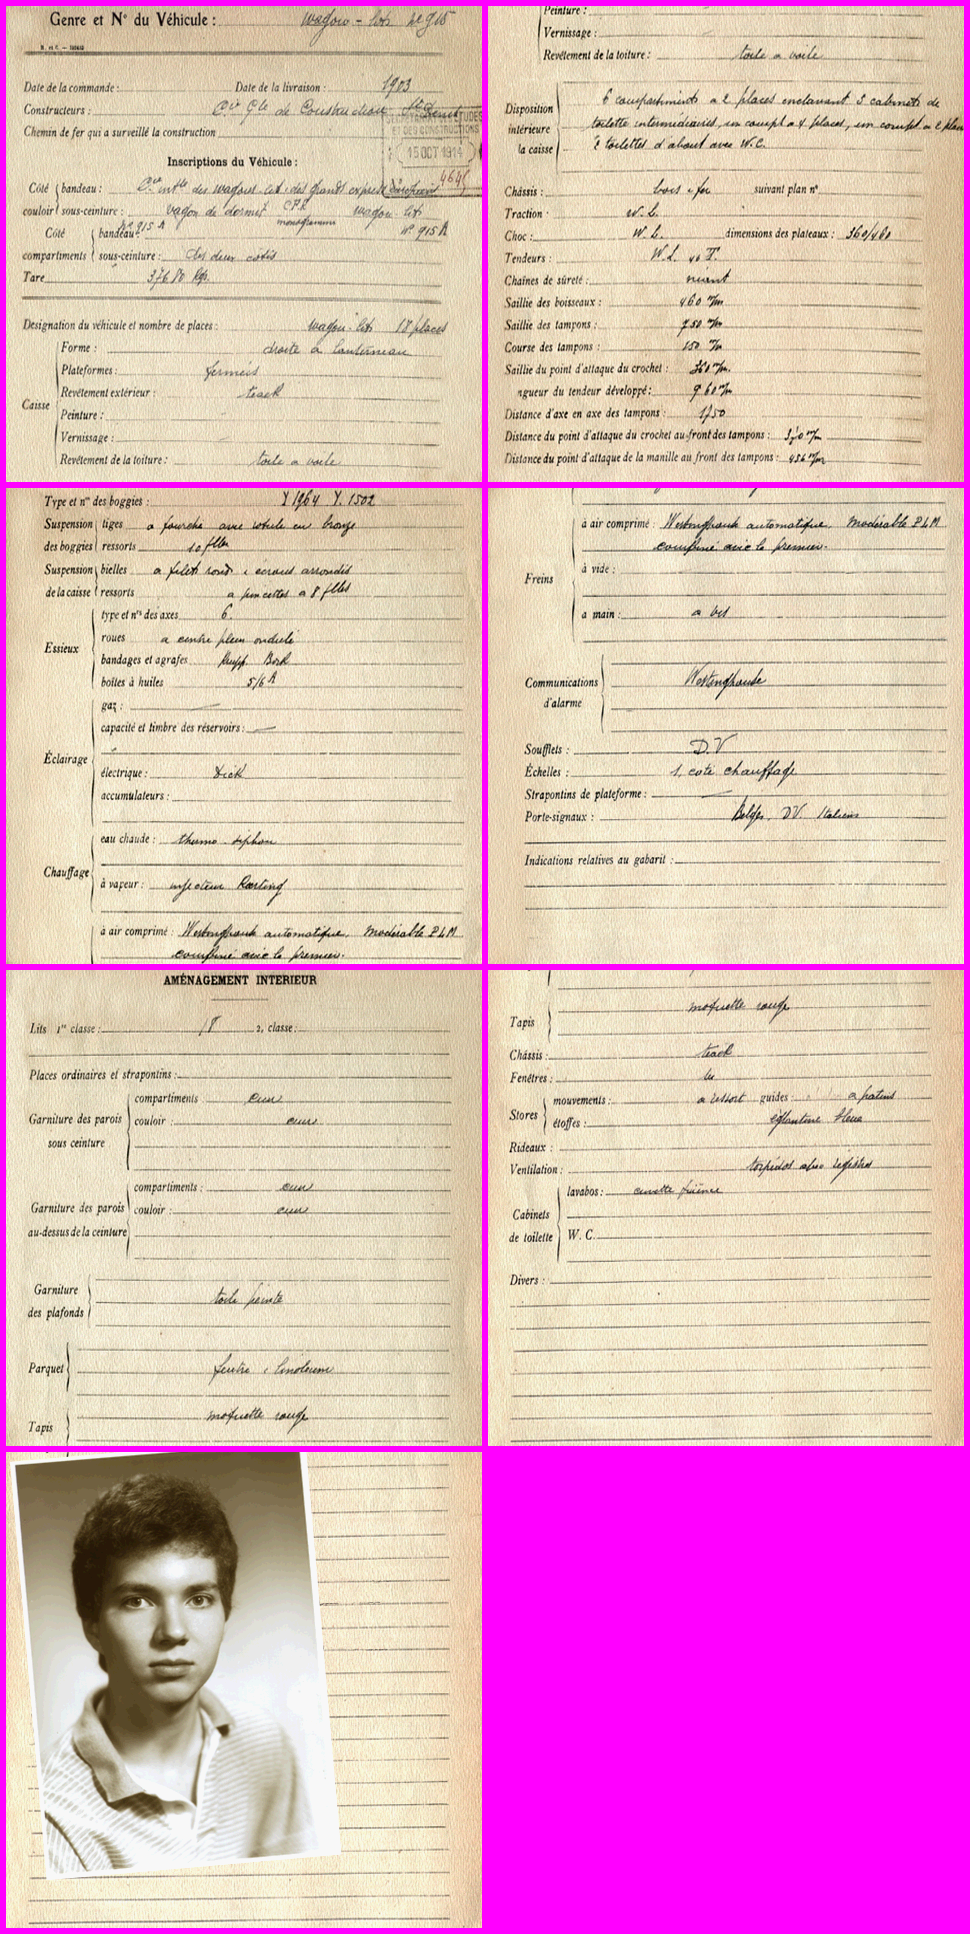 Genre et N° du Véhicule : wagon-lits N° 915
Date de la commande : Date de la livraison : 1903
Constructeurs : Cie Gle de Construction St Denis
Chemin de fer qui a surveillé la construction
ET DES CONSTRUCTIONS
15 OCT 1914
464
Inscriptions du Véhicule :
Côté couloir
bandeau : Cie intle des wagons-lits des grands express Européens
sous-ceinture : wagon de dormit C.F.R. monogramme wagon-lits
N° 915 A N° 915 A
Côté compartiments
bandeau :
sous-ceinture : des deux côtés
Tare 37680 Kgs.
Designation du véhicule et nombre de places : wagon-lits 18 places
Caisse
Forme : droite à lanterneau
Plateformes : fermées
Revêtement extérieur : teack
Peinture : -
Vernissage : -
Revêtement de la toiture : toile a voile
Peinture :
Vernissage : -
Revêtement de la toiture : toile a voile
Disposition intérieure la caisse
6 compartiments a 2 places enclavant 3 cabinets de
toilette intermédiaires, un compt a 4 places, un compt a 2 places
2 toilettes d'about avec W.C.
Châssis : bois & fer suivant plan n°
Traction : W.L.
Choc : W.L. dimensions des plateaux : 360/460
Tendeurs : W.L. 40 T.
Chaînes de sûreté : néant
Saillie des boisseaux : 460 m/m
Saillie des tampons : 750 m/m
Course des tampons : 150 m/m
Saillie du point d'attaque du crochet : 360 m/m.
ngueur du tendeur développé : 960 m/m
Distance d'axe en axe des tampons : 1750
Distance du point d'attaque du crochet au front des tampons : 370 m/m
Distance du point d'attaque de la manille au front des tampons : 456 m/m
Type et nos des boggies : Y 1964 Y. 1502
Suspension des boggies
tiges a fourche avec rotule en bronze
ressorts 10 flles
Suspension de la caisse
bielles a filets ronds & ecrous arrondis
ressorts a pincettes a 8 flles
Essieux
type et nos des axes 6.
roues a centre plein ondulé
bandages et agrafes Krupp Bork
boîtes à huiles 5/6 A
Éclairage
gaz : —
capacité et timbre des réservoirs : —
électrique : Dick
accumulateurs :
Chauffage
eau chaude : thermo-siphon
à vapeur : injecteur Kœrting
à air comprimé : Westinghouse automatique. Modérable P L M
combiné avec le premier.
Freins
à air comprimé : Westinghouse automatique. Modérable P L M
combiné avec le premier.
à vide :
a main : a vis
Communications d'alarme
Westinghouse
Soufflets : D.V
Échelles : 1, coté chauffage
Strapontins de plateforme : —
Porte-signaux : Belges, D.V. Italiens
Indications relatives au gabarit :
AMÉNAGEMENT INTERIEUR
Lits 1re classe : 18 2, classe :
Places ordinaires et strapontins :
Garniture des parois sous ceinture
compartiments cuir
couloir : cuir
Garniture des parois au-dessus de la ceinture
compartiments : cuir
couloir : cuir
Garniture des plafonds
toile peinte
Parquet feutre & linoleum
Tapis moquette rouge
Tapis moquette rouge
Châssis : teack
Fenêtres :
Stores
mouvements : a ressort guides : a patins
étoffes : églantine bleue
Rideaux :
Ventilation : torpédos avec registres
Cabinets de toilette
lavabos : cuvette faïence
W. C.
Divers :